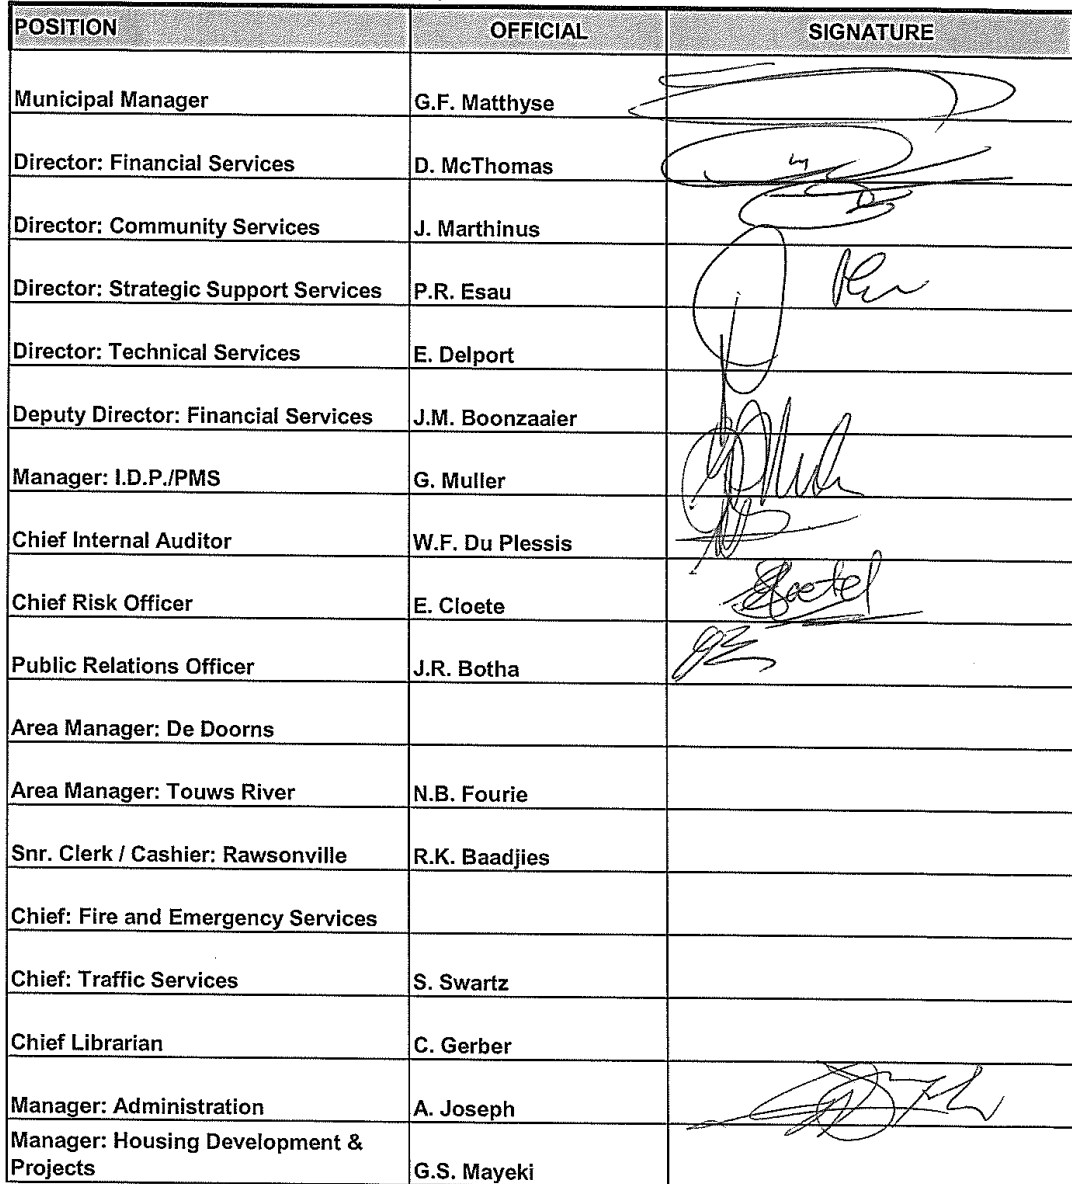 POSITION OFFICIAL SIGNATURE
Municipal Manager G.F. Matthyse
Director: Financial Services D. McThomas
Director: Community Services J. Marthinus
Director: Strategic Support Services P.R. Esau
Director: Technical Services E. Delport
Deputy Director: Financial Services J.M. Boonzaaier
Manager: I.D.P./PMS G. Muller
Chief Internal Auditor W.F. Du Plessis
Chief Risk Officer E. Cloete
Public Relations Officer J.R. Botha
Area Manager: De Doorns
Area Manager: Touws River N.B. Fourie
Snr. Clerk / Cashier: Rawsonville R.K. Baadjies
Chief: Fire and Emergency Services
Chief: Traffic Services S. Swartz
Chief Librarian C. Gerber
Manager: Administration A. Joseph
Manager: Housing Development &
Projects G.S. Mayeki